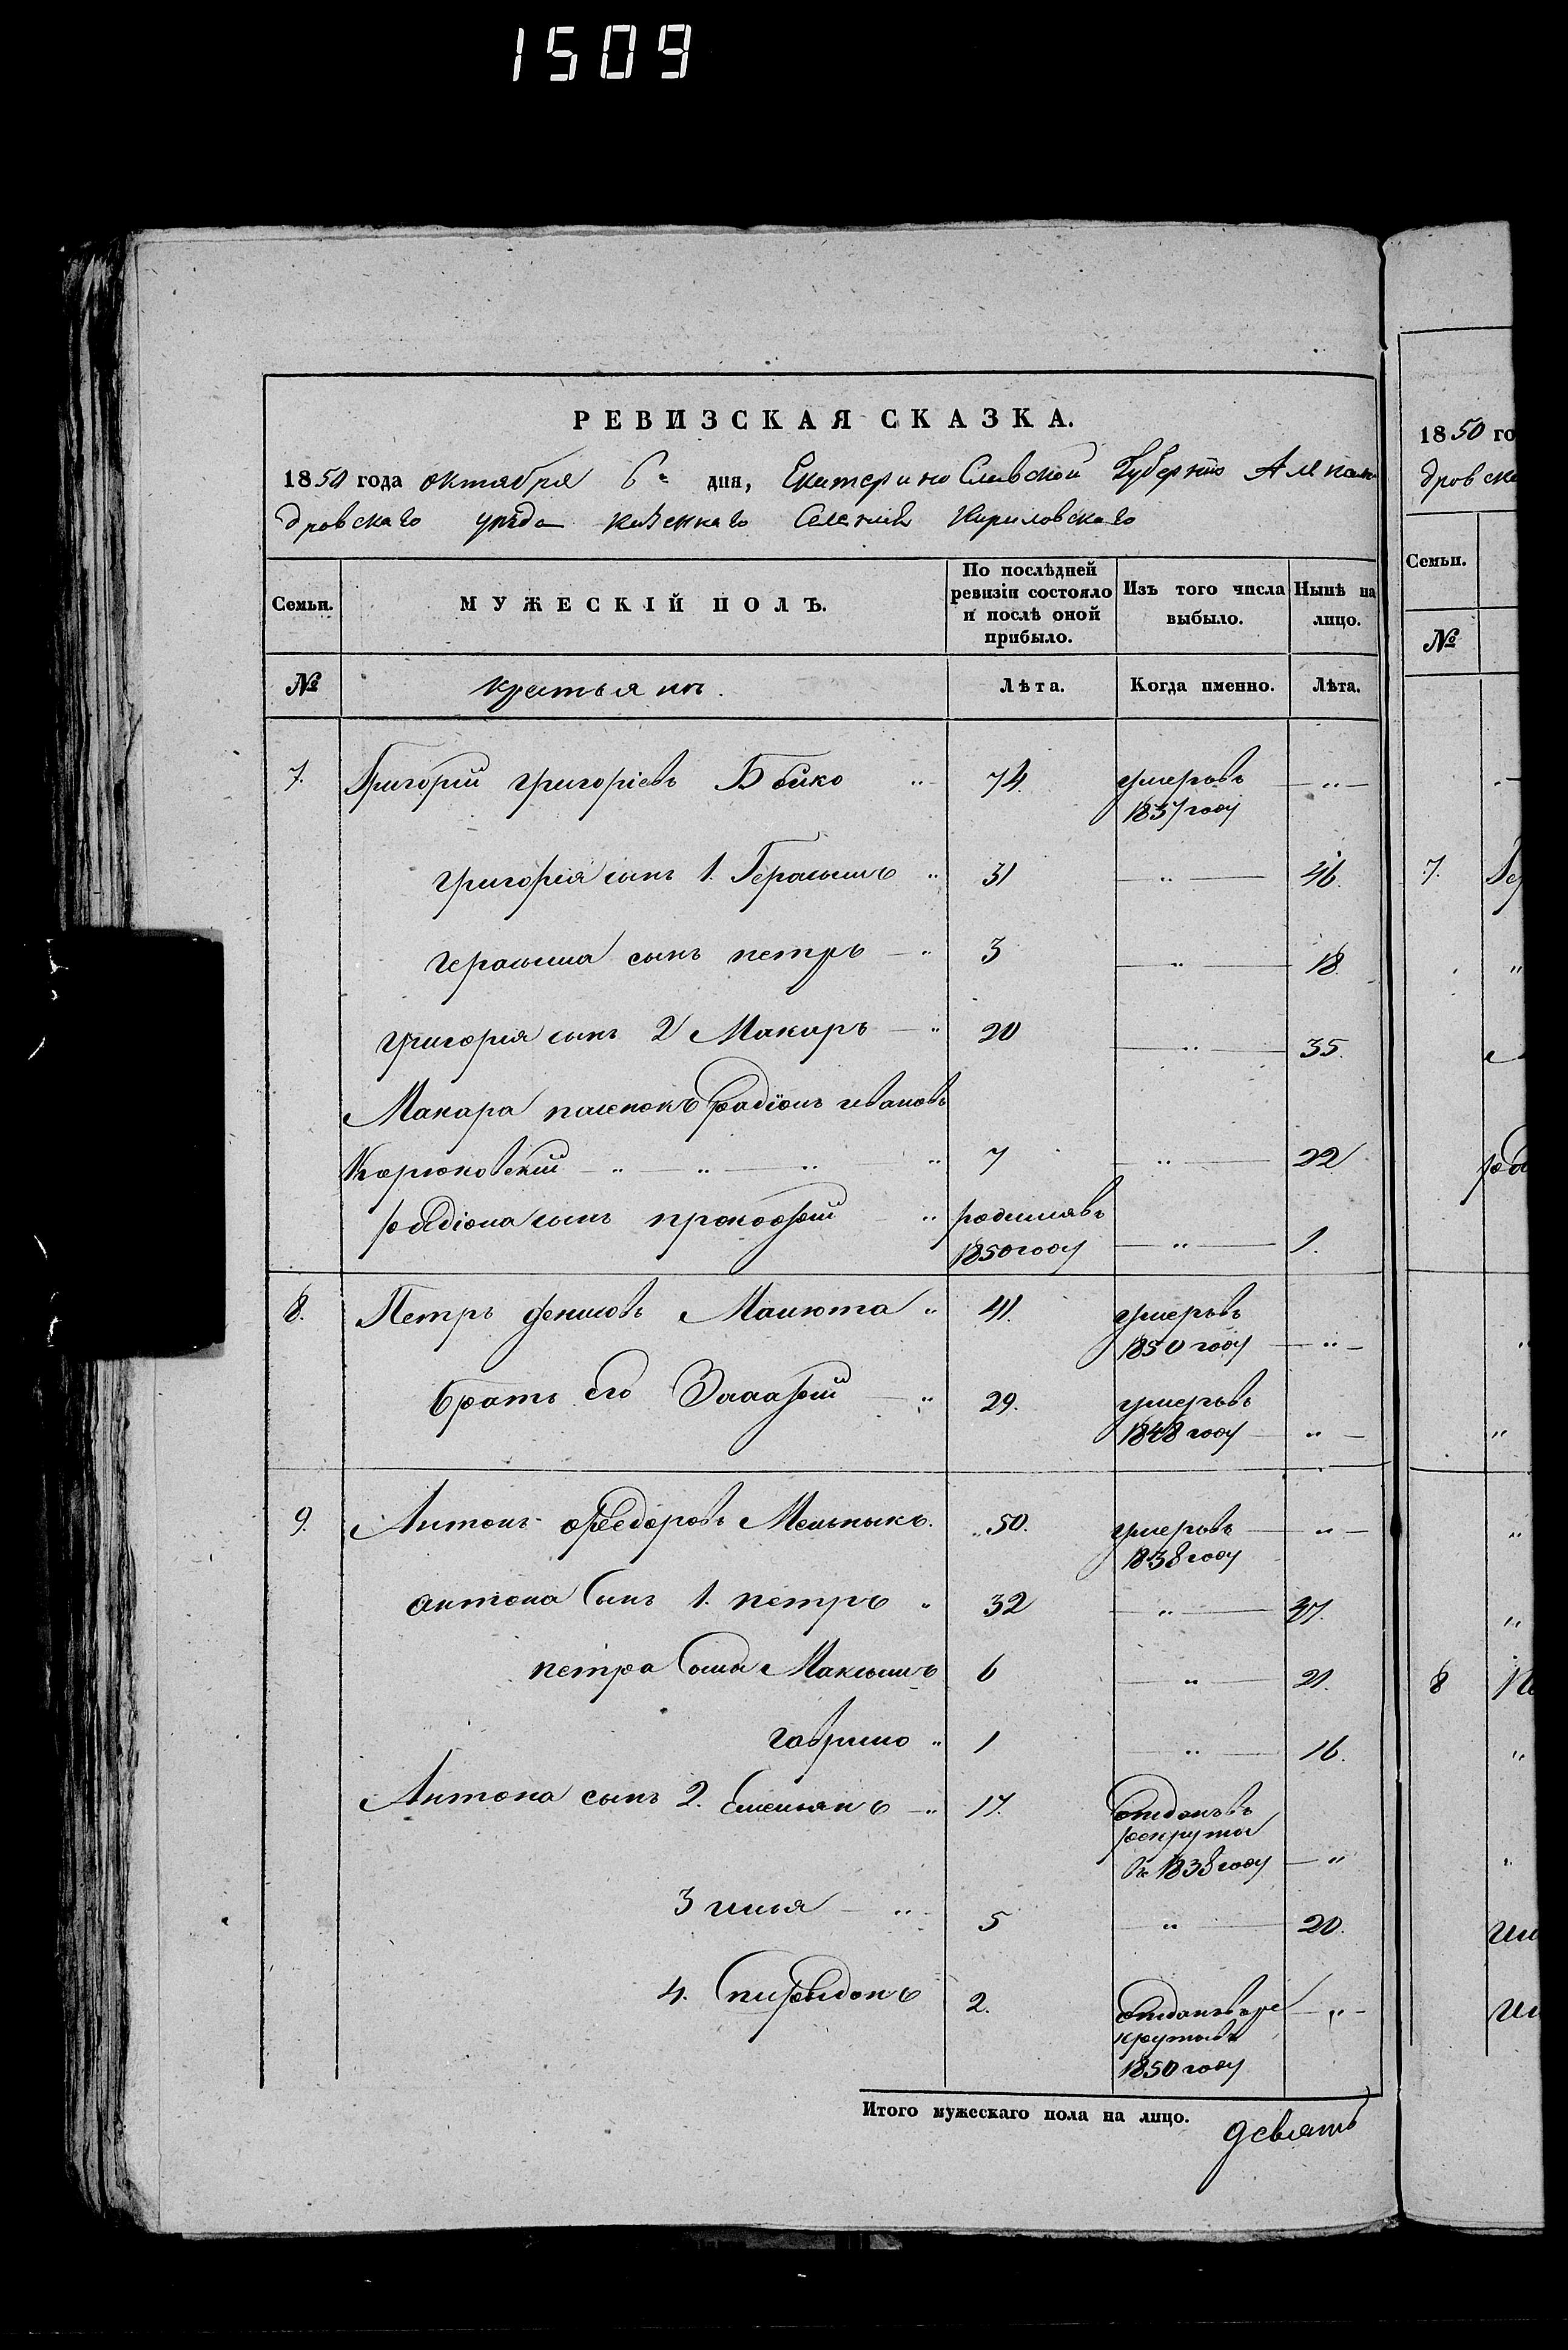 1509
РЕВИЗСКАЯ СКАЗКА.
1850 года октября 6го дня, Екатерино Славской Губерніи Алексан
дровскаго уѣзда казеннаго Селенія Кириловскаго
Семьи. МУЖЕСКІЙ ПОЛЪ. По послѣдней ревизіи состояло и послѣ оной прибыло. Изъ того числа выбыло. Нынѣ на лицо.
№ крестьянъ. Лѣта. Когда именно. Лѣта.
7. Григорий григоріевъ Бойко 74. умеръ въ — " —
1837 году
григорія сынъ 1. Герасимъ " 31 — " — 46.
герасима сынъ петръ — " 3 — " — 18.
григорія сынъ 2 Макаръ — " 20 — " — 35.
Макара пасенокъ радіонъ ивановъ
Корюковскій — " — " — " " 7 — " — 22
радіона сынъ прокофій — " родился въ
1850 году — " — 1.
8. Петръ денисовъ Малюта " 41. умеръ въ
1850 году — " —
братъ его — " 29. умеръ въ
1848 году — " —
9. Антонъ Федоровъ Мельныкъ. " 50. умеръ въ — " —
1838 году
антона Сынъ 1. петръ " 32 — " — 47.
петра Сыны Максимъ 6 — " — 21.
гаврило " 1 — " — 16.
Антона сынъ 2. Емельянъ — " 17. Отданъ въ
рекруты
въ 1838 году — "
3 илья — " 5 — " — 20.
4. Спиридонъ 2. Отданъ въ ре — " —
круты въ
1850 году
Итого мужескаго пола на лицо. девять
1850 го
дровска
Семьи.
№
7. Гер
8 Пе